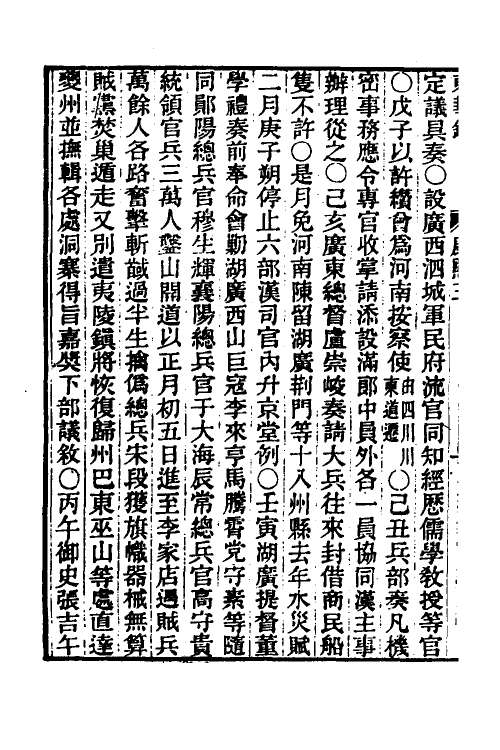 定議具奏○設廣西泗城軍民府流官同知經歷儒學敎授等官
○戊子以許纘曾爲河南按察使由四川川東道遷○己丑兵部奏凡機
密事務應令專官收掌請添設滿郞中員外各一員協同漢主事
辦理從之○己亥廣東總督盧崇峻奏請大兵往來封借商民船
隻不許○是月免河南陳留湖廣荆門等十八州縣去年水災賦
二月庚子朔停止六部漢司官內升京堂例○壬寅湖廣提督董
學禮奏前奉命會勦湖廣西山巨寇李來亨馬騰霄党守素等隨
同鄖陽總兵官穆生輝襄陽總兵官于大海辰常總兵官高守貴
統領官兵三萬人鑿山開道以正月初五日進至李家店遇賊兵
萬餘人各路奮擊斬馘過半生擒僞總兵宋段獲旗幟器械無算
賊黨焚巢遁走又別遣夷陵鎭將恢復歸州巴東巫山等處直達
夔州並撫輯各處洞寨得旨嘉奬下部議敘○丙午御史張吉午